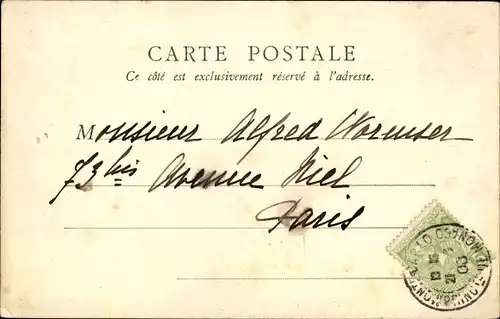 CARTE POSTALE
Ce côté est exclusivement réservé à l'adresse.
Monsieur Alfred Wormser
73 bis Avenue Niel
Paris